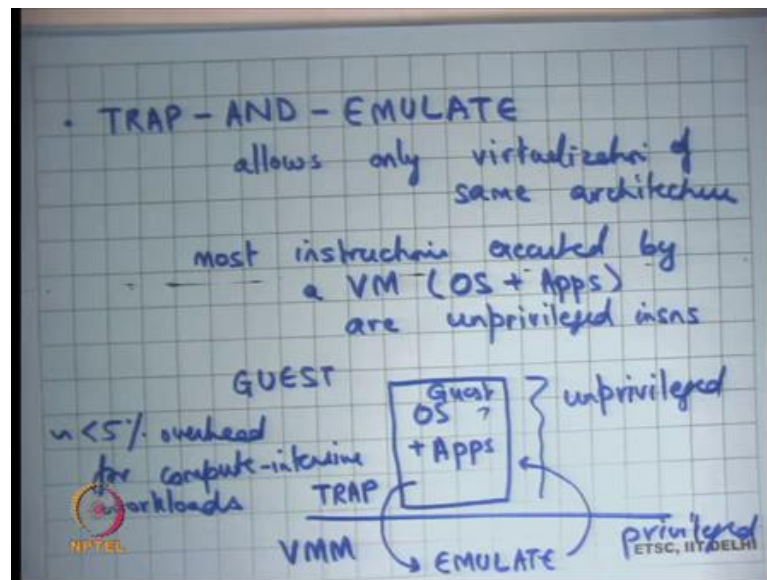 . TRAP - AND - EMULATE
allows only virtualization of
same architecture
most instructions executed by
a VM (OS + Apps)
are unprivileged insns
GUEST
Guest
OS
+ Apps
unprivileged
~ <5% overhead
for compute-intensive
workloads
TRAP
VMM
EMULATE
privileged
NPTEL
ETSC, IIT DELHI